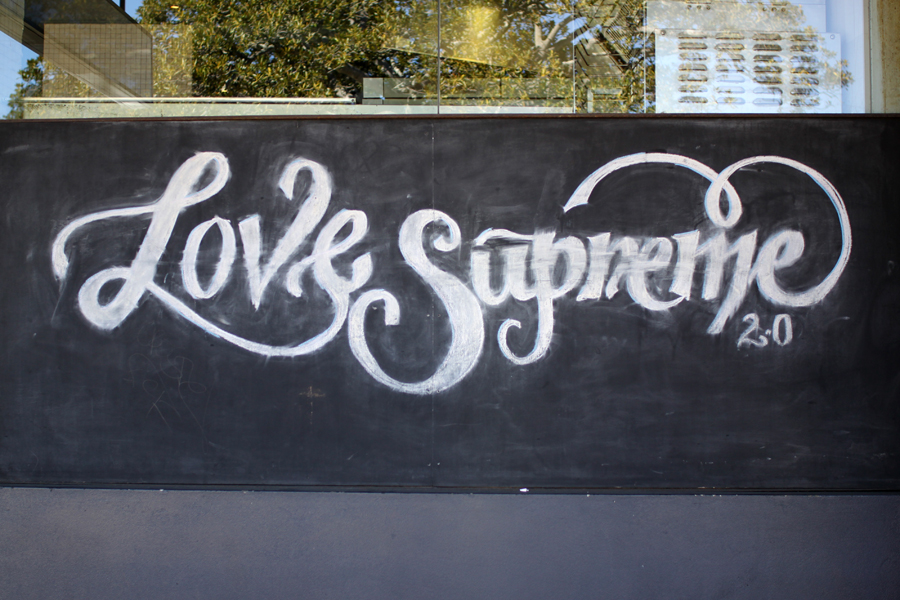 Love Supreme
2.0